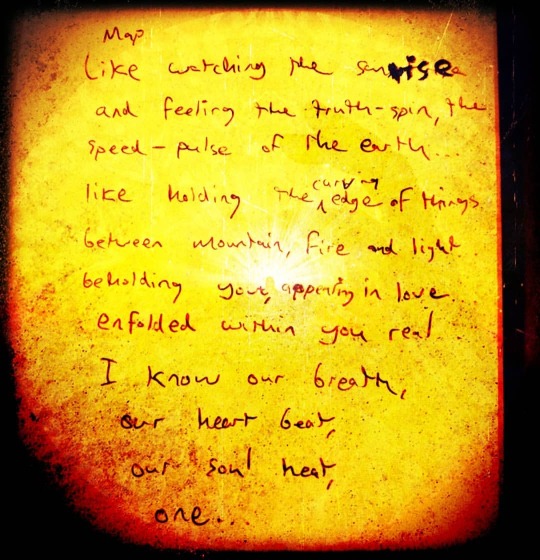 Map
Like watching the sunrise
and feeling the truth-spin, the
speed-pulse of the earth...
like holding the curving edge of things
between mountain, fire and light
beholding you, appearing in love
enfolded within you real
I know our breath,
our heart beat,
our soul heat,
one...